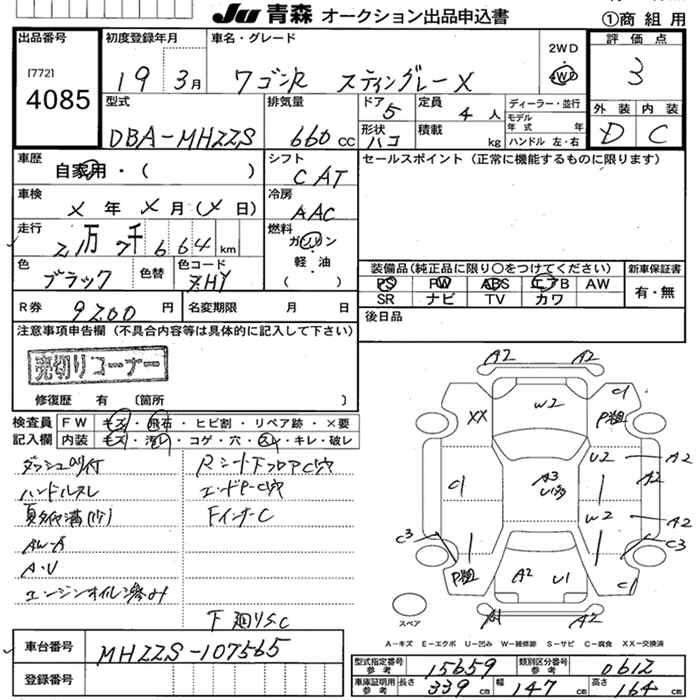 JU 青森 オークション出品申込書 ①商組用
出品番号 初度登録年月 車名・グレード 2WD 評価点
[772] 19 3月 ワゴンR スティングレーX 4WD 3
4085 型式 排気量 ドア 5 定員 4人 ディーラー・並行 外装 内装
DBA-MH22S 660cc 形状 ハコ 積載 kg モデル年式 年 D C
ハンドル 左・右
車歴 シフト セールスポイント (正常に機能するものに限ります)
自家用・( ) CAT
車検 冷房
メ 年 メ 月 (メ 日) AAC
走行 燃料
21万7千664km ガソリン
色 色替 色コード 軽・油
ブラック ZHY ( )
装備品(純正品に限り〇をつけてください) 新車保証書
PS PW ABS エアB AW 有・無
SR ナビ TV カワ
R券 9200円 名変期限 月 日 後日品
注意事項申告欄 (不具合内容等は具体的に記入して下さい)
売切りコーナー
修復歴 有 〔箇所 〕
検査員 FW キズ・飛石・ヒビ割・リペア跡・×要
記入欄 内装 キズ・汚レ・コゲ・穴・スレ・キレ・破レ
ダッシュ Rシート下フロアC穴
ハンドルスレ エンドP-C穴
夏タイヤ溝 FインナーC
AW-A
A・U
エンジンオイル滲み
下廻りSC
A2 A2
XX W2 C1
U2 A2
C1 A3 A2
W2 A2
C3 C3
A2 U1 C1
A2
スペア
A-キズ E-エクボ U-凹み W-補修跡 S-サビ C-腐食 XX-交換済
車台番号 MH22S-107565
登録番号
型式指定番号 参考 15659 類別区分番号 参考 0612
車庫証明用 参考 長さ 339cm 幅 147cm 高さ 164cm